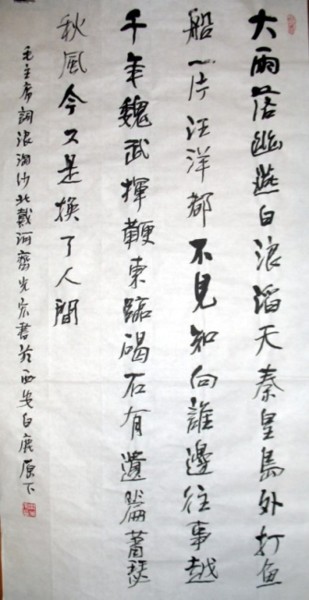 大雨落幽燕白浪滔天秦皇島外打魚
船一片汪洋都不見知向誰邊往事越
千年魏武揮鞭東臨碣石有遺篇蕭瑟
秋風今又是換了人間
毛主席詞浪淘沙北戴河齊光宏書於西安白鹿原下